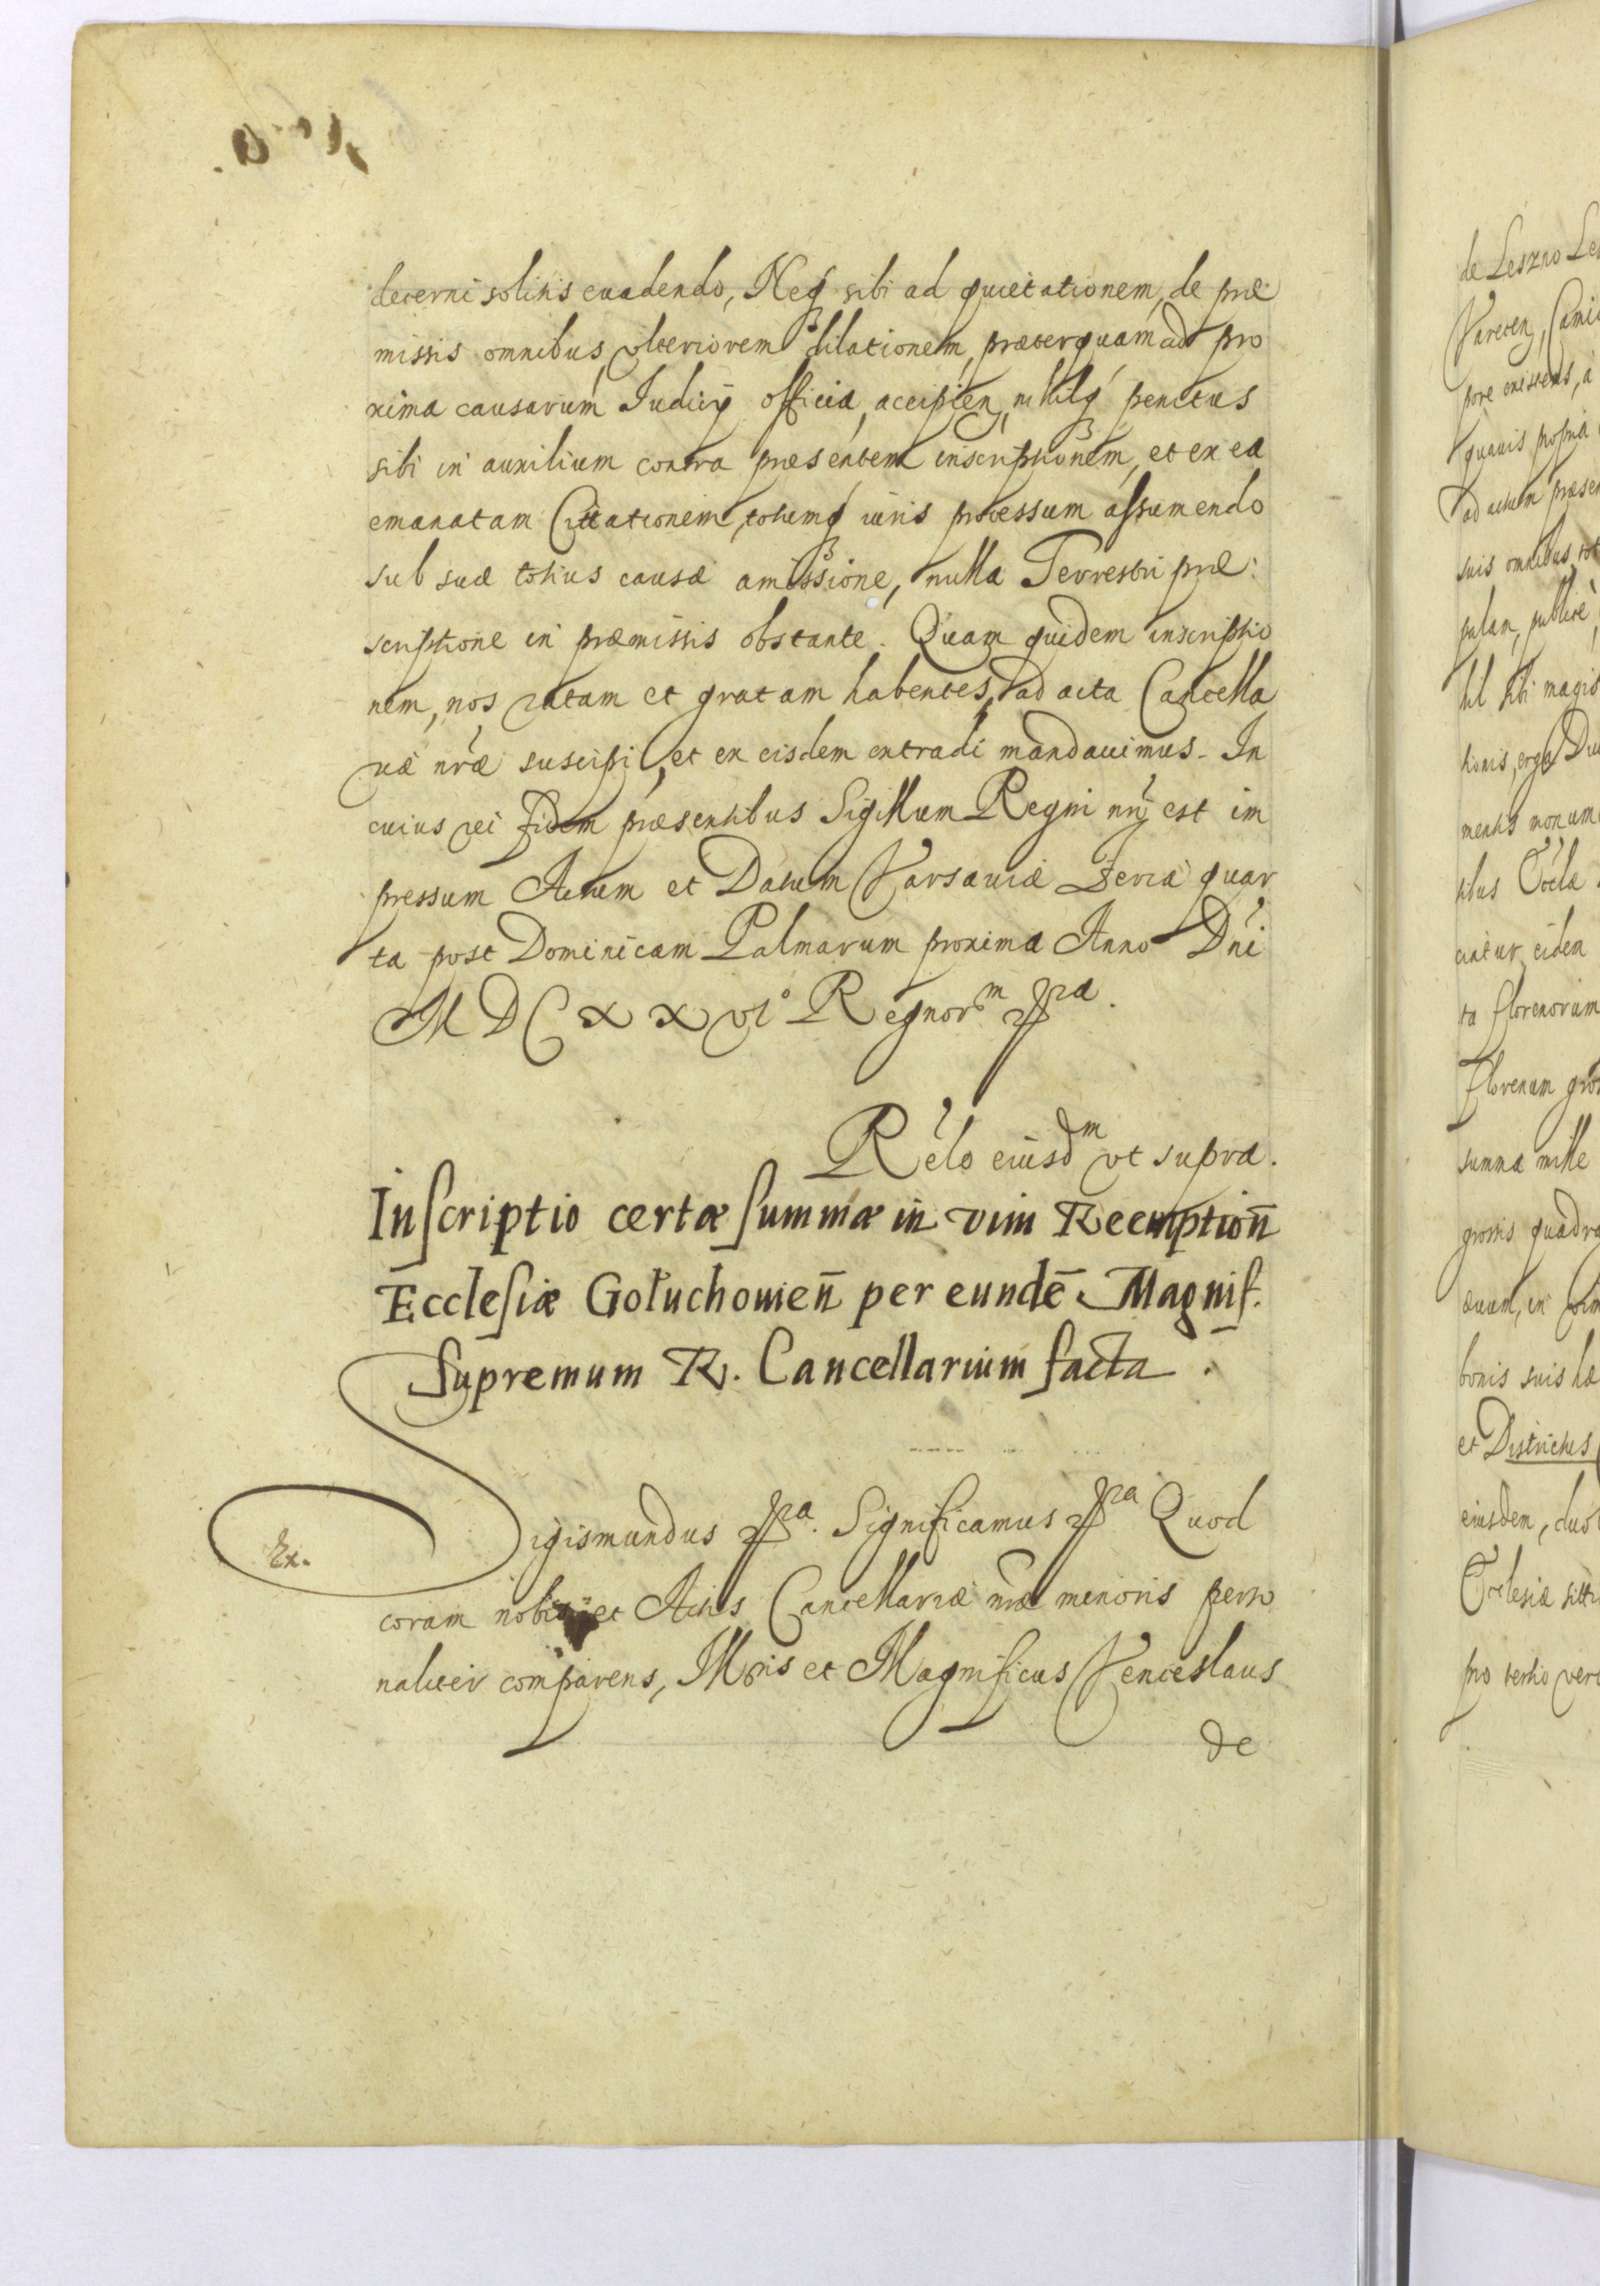 decerni solitis euadendo, Neq sibi ad quietationem, de præ
missis omnibus, vlteriorem dilationem, præterquam ad pro
xima causarum Iudicÿ officia, accipien, nihilq penitus
sibi in auxilium contra præsentem inscriptionem, et ex ea
emanatam Cittationem, totumq iuris processum assumendo
sub suæ totius causæ amissione, nulla Terrestri præ:
scriptione in præmissis obstante. Quam quidem inscriptio
nem, nos ratam et gratam habentes, ad acta Cancella
riæ nræ suscipi, et ex eisdem extradi mandauimus. In
cuius rei fidem præsentibus Sigillum Regni nrj est im
pressum Actum et Datum Varsauiæ Feria quar
ta post Dominicam Palmarum proxima Anno Dni
M D C X X VI° Regnor m
Relo eiusd m vt supra.
Inscriptio certæ summæ in vim Reemption
Ecclesiæ Gołuchouien per eunde Magnif.
Supremum R. Cancellarium facta.
Ex.
Sigismundus. Significamus Quod
coram nobis et Actis Cancellariæ nræ minoris perso
naliter comparens, Illris et Magnificus Venceslaus
de
de Leszno
pore existens, a
quauis
ad actum
suis omnibus
palam, publice
hil sibi magis
tionis, erga
mentis
tibus Eccla
ciatur eidem
ta florenorum
florenum
summa mille
grossis
bonis suis
et Districtus
eiusdem, duo
Ecclesiæ
pro tertio vero